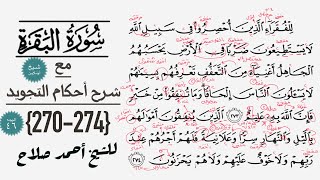 سُورَةُ البَقَرَةِ
مع
شرح أحكام التجويد
{270-274}
للشيخ أحمد صلاح
لِلْفُقَرَاءِ الَّذِينَ أُحْصِرُوا فِي سَبِيلِ اللَّهِ
لَا يَسْتَطِيعُونَ ضَرْبًا فِي الْأَرْضِ يَحْسَبُهُمُ
الْجَاهِلُ أَغْنِيَاءَ مِنَ التَّعَفُّفِ تَعْرِفُهُم بِسِيمَاهُمْ
لَا يَسْأَلُونَ النَّاسَ إِلْحَافًا وَمَا تُنفِقُوا مِنْ خَيْرٍ
فَإِنَّ اللَّهَ بِهِ عَلِيمٌ ٢٧٣ الَّذِينَ يُنفِقُونَ أَمْوَالَهُم
بِاللَّيْلِ وَالنَّهَارِ سِرًّا وَعَلَانِيَةً فَلَهُمْ أَجْرُهُمْ عِندَ
رَبِّهِمْ وَلَا خَوْفٌ عَلَيْهِمْ وَلَا هُمْ يَحْزَنُونَ ٢٧٤